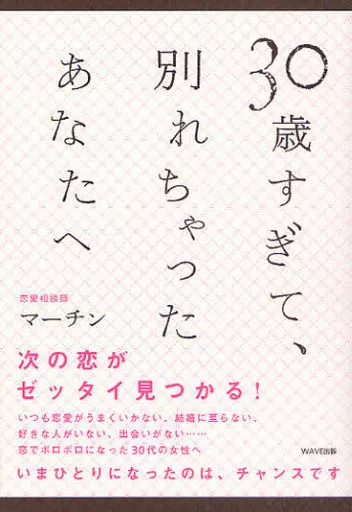 30歳すぎて、
別れちゃった
あなたへ
恋愛相談師
マーチン
次の恋が
ゼッタイ見つかる!
いつも恋愛がうまくいかない、結婚に至らない、
好きな人がいない、出会いがない……
恋でボロボロになった30代の女性へ
WAVE出版
いまひとりになったのは、チャンスです